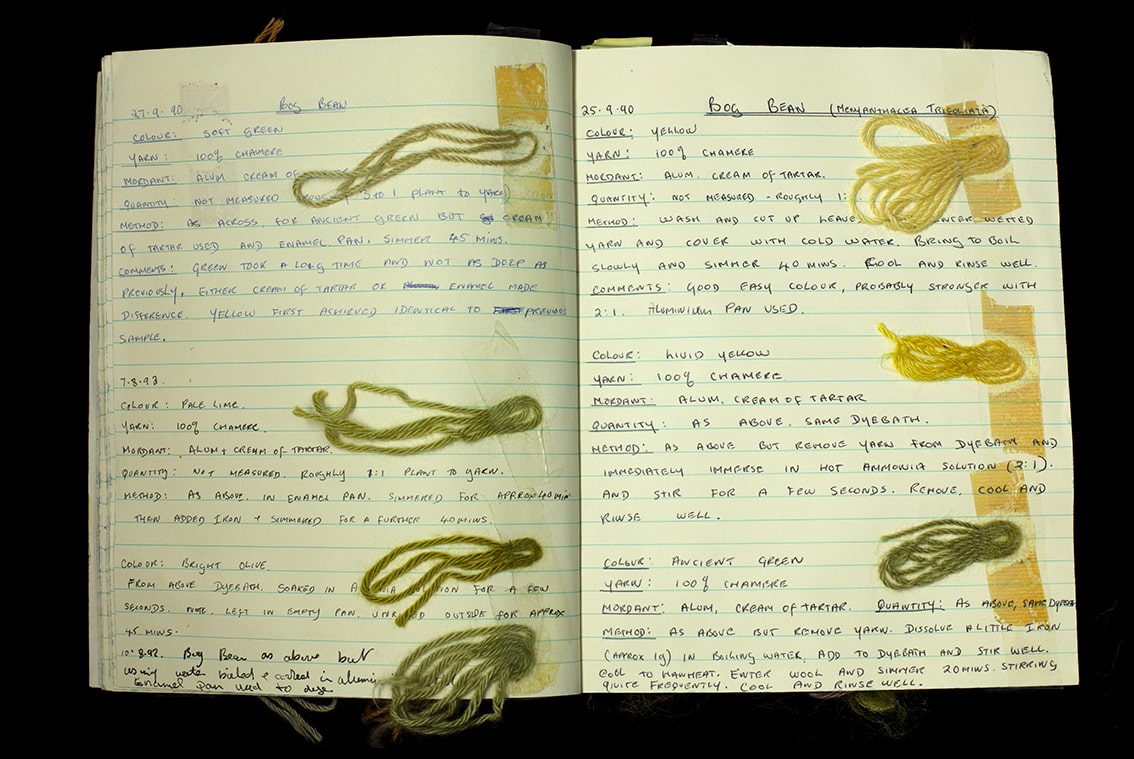 27.9.90 Bog Bean
COLOUR: SOFT GREEN
YARN: 100% CHAMERE
MORDANT: ALUM CREAM OF
QUANTITY: NOT MEASURED 3 TO 1 PLANT TO YARN)
METHOD: AS ACROSS, FOR ANCIENT GREEN BUT CREAM
OF TARTAR USED AND ENAMEL PAN. SIMMER 45 MINS.
COMMENTS: GREEN TOOK A LONG TIME AND NOT AS DEEP AS
PREVIOUSLY, EITHER CREAM OF TARTAR OR ENAMEL MADE
DIFFERENCE. YELLOW FIRST ACHIEVED IDENTICAL TO PREVIOUS
SAMPLE.
COLOUR: PALE LIME.
YARN: 100% CHAMERE.
MORDANT: ALUM + CREAM OF TARTAR.
QUANTITY: NOT MEASURED. ROUGHLY PLANT TO YARN.
METHOD: AS ABOVE. IN ENAMEL PAN. SIMMERED FOR APPROX 40 MIN
THEN ADDED IRON + SIMMERED FOR A FURTHER 40 MINS.
COLOUR: BRIGHT OLIVE.
FROM ABOVE DYEBATH. SOAKED IN A FOR A FEW
SECONDS. NOTE. LEFT IN EMPTY PAN, OUTSIDE FOR APPROX
45 MINS.
Bog Bean as above but
using water boiled + cooled in
Enamel pan used to dye
25.9.90 BOG BEAN (MENYANTHACEA TRIFOLIATA)
COLOUR: YELLOW
YARN: 100% CHAMERE
MORDANT: ALUM. CREAM OF TARTAR.
QUANTITY: NOT MEASURED - ROUGHLY 1:
METHOD: WASH AND CUT UP LEAVE ENTER WETTED
YARN AND COVER WITH COLD WATER. BRING TO BOIL
SLOWLY AND SIMMER 40 MINS. COOL AND RINSE WELL.
COMMENTS: GOOD EASY COLOUR, PROBABLY STRONGER WITH
2:1. ALUMINIUM PAN USED.
COLOUR: LIVID YELLOW
YARN: 100% CHAMERE.
MORDANT: ALUM, CREAM OF TARTAR
QUANTITY: AS ABOVE. SAME DYEBATH.
METHOD: AS ABOVE BUT REMOVE YARN FROM DYEBATH AND
IMMEDIATELY IMMERSE IN HOT AMMONIA SOLUTION (2:1).
AND STIR FOR A FEW SECONDS. REMOVE, COOL AND
RINSE WELL.
COLOUR: ANCIENT GREEN
YARN: 100% CHAMERE
MORDANT: ALUM, CREAM OF TARTAR. QUANTITY: AS ABOVE, SAME
METHOD: AS ABOVE BUT REMOVE YARN. DISSOLVE A LITTLE IRON
(APPROX 1g) IN BOILING WATER, ADD TO DYEBATH AND STIR WELL.
COOL TO HANDHEAT. ENTER WOOL AND SIMMER 20 MINS. STIRRING
QUITE FREQUENTLY. COOL AND RINSE WELL.